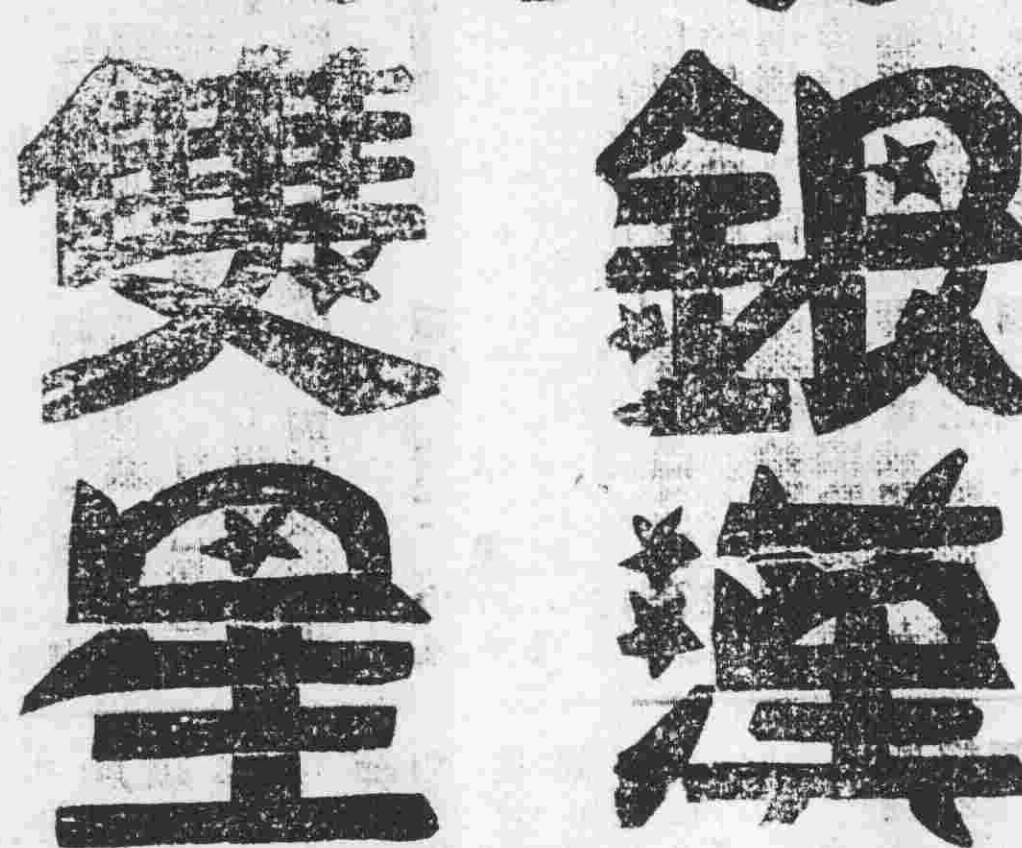 銀漢
雙星